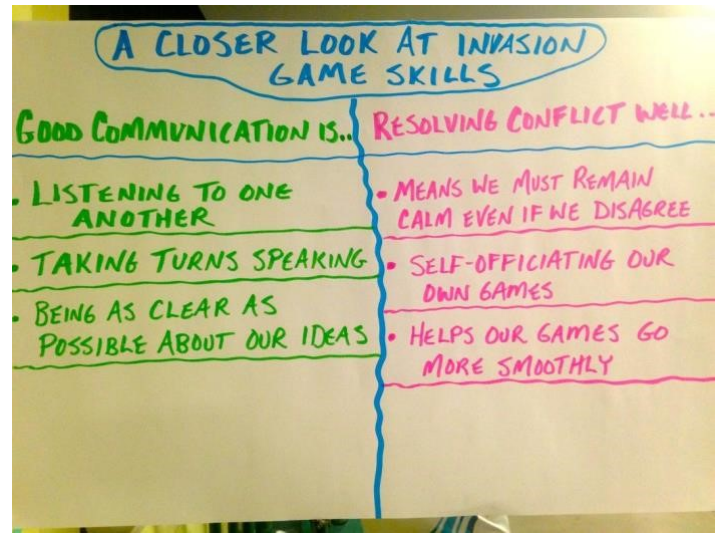 A CLOSER LOOK AT INVASION
GAME SKILLS
GOOD COMMUNICATION IS..
• LISTENING TO ONE
ANOTHER
• TAKING TURNS SPEAKING
• BEING AS CLEAR AS
POSSIBLE ABOUT OUR IDEAS
RESOLVING CONFLICT WELL...
• MEANS WE MUST REMAIN
CALM EVEN IF WE DISAGREE
• SELF-OFFICIATING OUR
OWN GAMES
• HELPS OUR GAMES GO
MORE SMOOTHLY